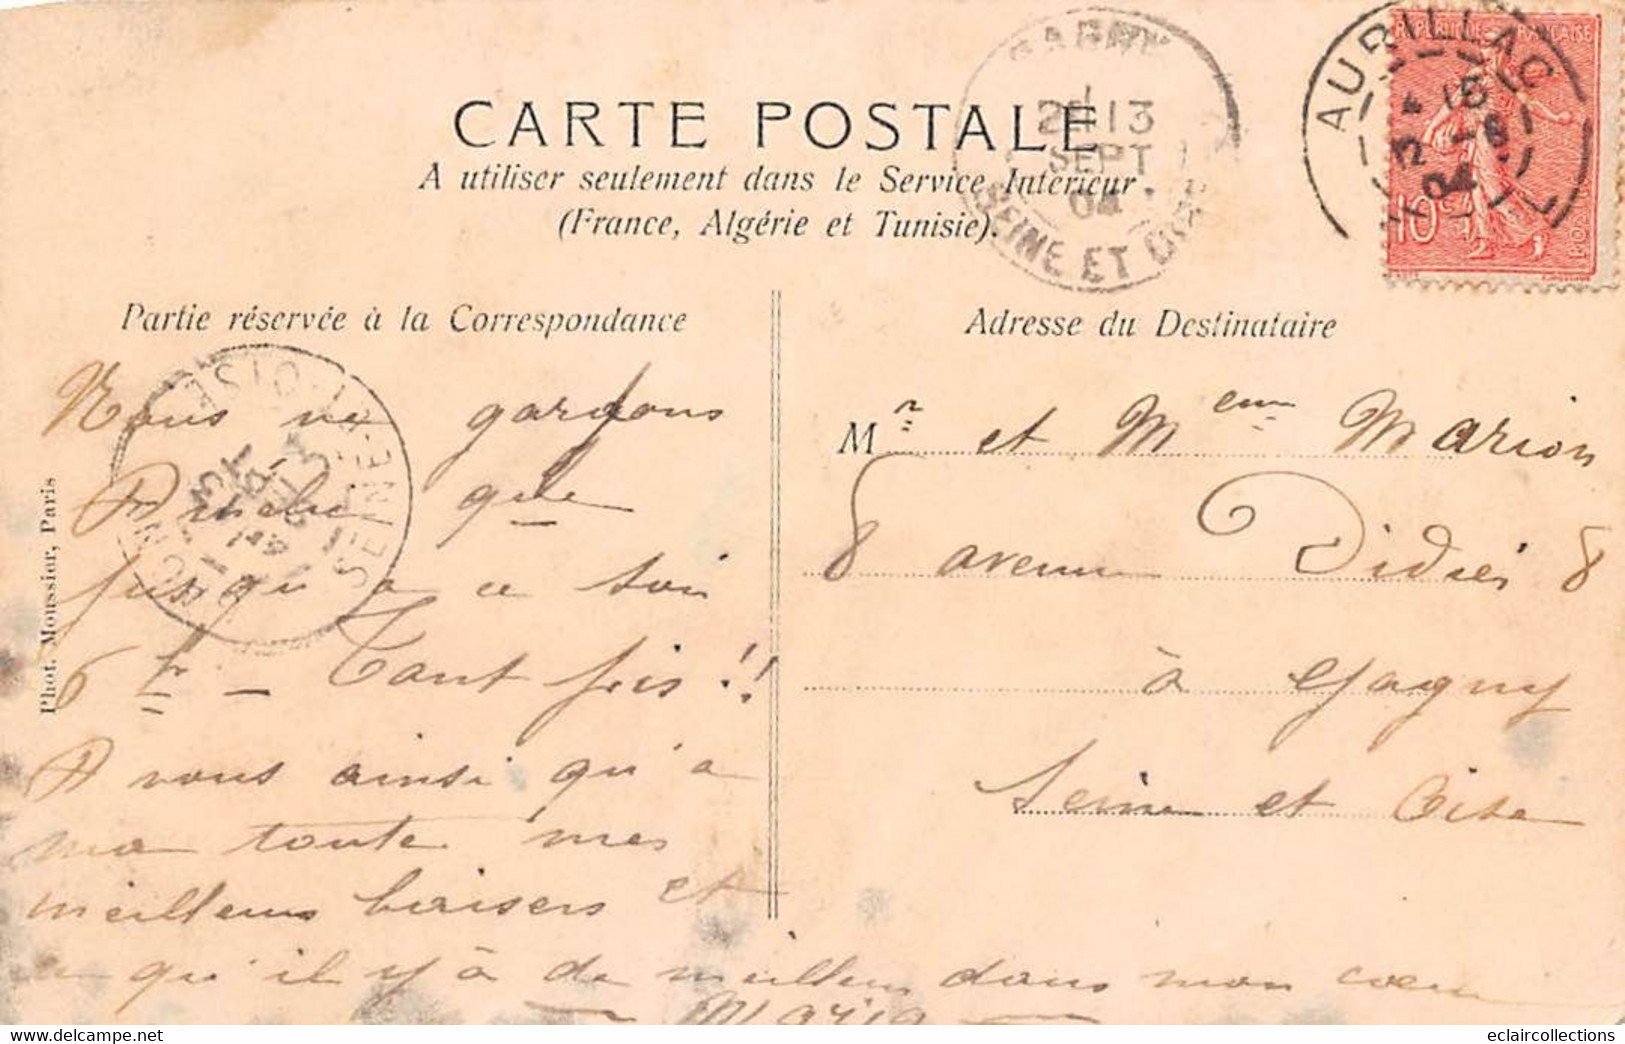 CARTE POSTALE
A utiliser seulement dans le Service Intérieur.
(France, Algérie et Tunisie).
GAGNY
2E 13
SEPT
04
SEINE ET OISE
AURILLAC
12 - 9
04
REPUBLIQUE FRANÇAISE
10
POSTES
Partie réservée à la Correspondance
Adresse du Destinataire
Phot. Moussier, Paris
SEINE-ET-OISE
Nous ne gardons
que
jusqu'à ce soir
6 h — Tant pis !!
A vous ainsi qu'a
ma toute mes
meilleurs baisers et
ce qu'il y à de meilleur dans mon coeur
Maria
Mr et Mme Marion
8 avenue Didier 8
à Gagny
Seine et Oise
eclaircollections